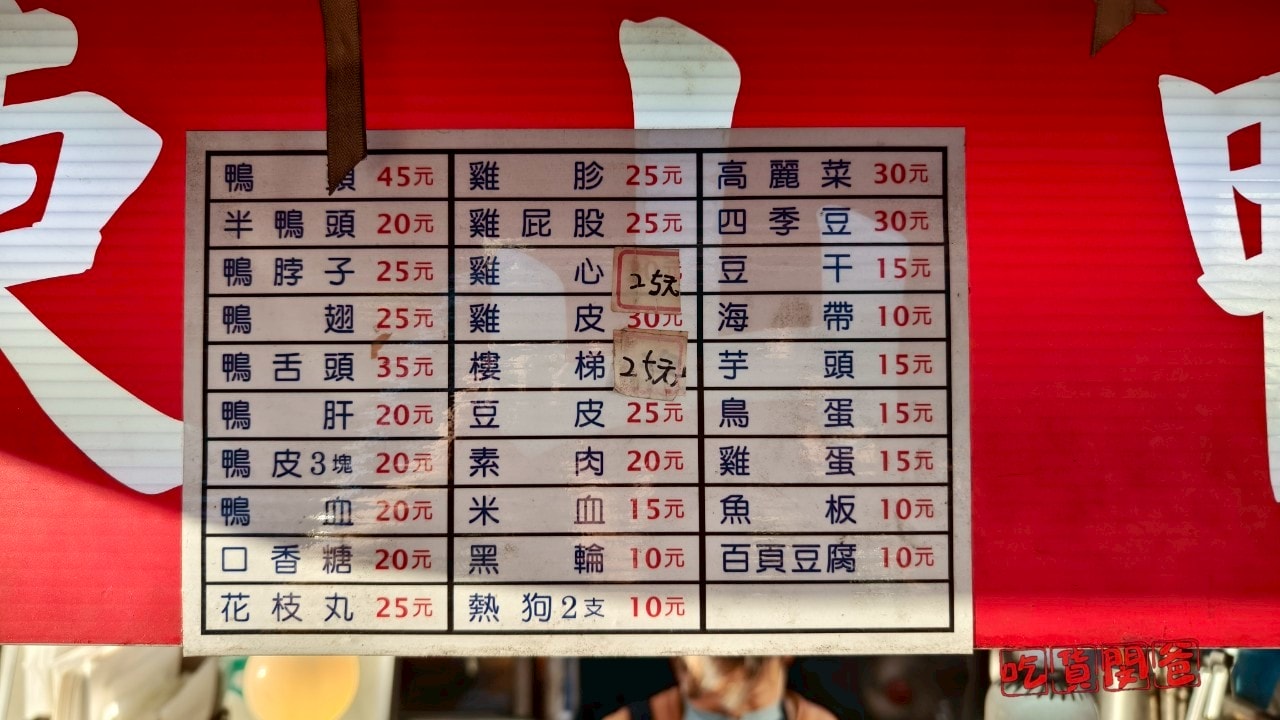 東山鴨
鴨頭 45元 雞胗 25元 高麗菜 30元
半鴨頭 20元 雞屁股 25元 四季豆 30元
鴨脖子 25元 雞心 25元 豆干 15元
鴨翅 25元 雞皮 30元 海帶 10元
鴨舌頭 35元 樓梯 25元 芋頭 15元
鴨肝 20元 豆皮 25元 鳥蛋 15元
鴨皮3塊 20元 素肉 20元 雞蛋 15元
鴨血 20元 米血 15元 魚板 10元
口香糖 20元 黑輪 10元 百頁豆腐 10元
花枝丸 25元 熱狗2支 10元
吃貨閔爸